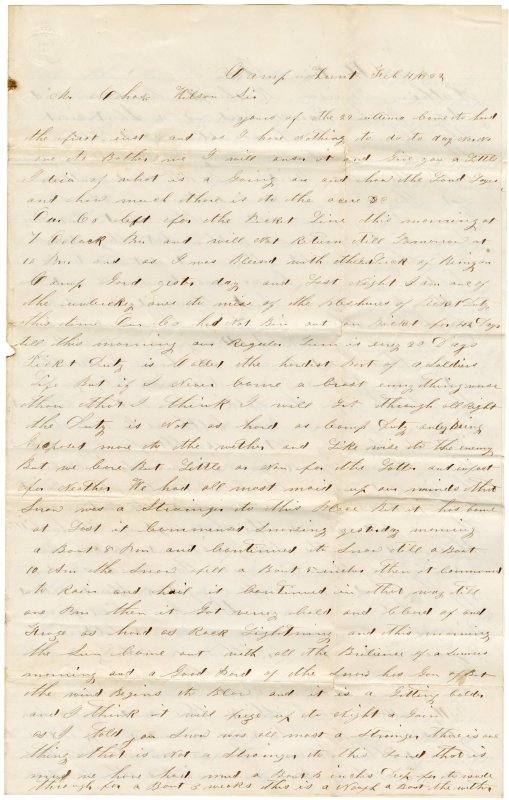 Camp Hunt Feb 4 1862
Mr Chas Wilson Sir
yours of the 22 ultimo Came to hand
the first inst and as I have Nothing to do to day
one to Bother me I will answ it and Give you a Little
I dica of what is a Going on and how the Land Lays
and how much there is to the acre &c
Our Co left for the Picket Line this morning at
7 Oclock and will Not Return till Tomorrow at
10 and as I was Blesed with the Luck of Being
Camp Gard yester day and Last Night I am one of
the unluckey ones to miss of the Pleshures of Picket Duty
this time Our Co had Not Bin out on Picket for Days
till this morning our Regular Turn is evry 20 Days
Picket Duty is Calld the hardest Part of a Soldiers
Life But if I Never Come a Crost eny thing worse
than that I think I will Get through all Right
the Duty is Not as hard as Camp Duty only Being
Exposed more to the wether and Like wise to the enemy
But we Care But Little or Non for the Latter and
for Neather We had all most maid up our minds that
Snow was a Stranger to this Place But it has Come
at Last it Commenced Snowing yesterday morning
a Bout 8 and Continued to Snow till a Bout
10 Am the Snow fell a Bout 5 inches then it Commenced
to Rain and hail it Continued in that way till
then it Got verey Cold and Cleard of and
Froze as hard as Rock Lightning and this morning
the Sun Come out with all the Briliance of a Sumers
morning and a Good Part of the Snow has Gon of But
the wind Begins to Blow and it is a Gitting Colder
and I think it will freze up to Night a Gain
as I told you Snow was all most a Stranger there is one
thing that is Not a Stranger to this Land that is
mud we have had mud a Bout 6 inches Deep for to wade
through for a Bout 3 weeks this is a Nough a Bout the wether